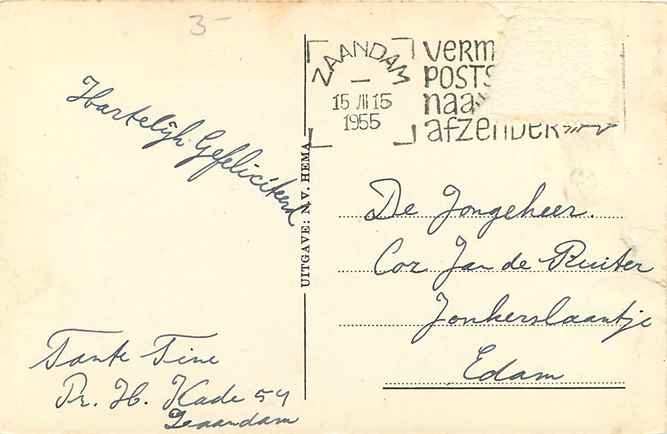 3-
ZAANDAM
15 III 15
1955
VERM
POSTS
naa
afzender
Hartelijk Gefeliciteerd
UITGAVE: N.V. HEMA
De Jongeheer.
Cor Jan de Ruiter
Jonkerslaantje
Edam
Tante Tine
Pr. H. Kade 54
Zaandam